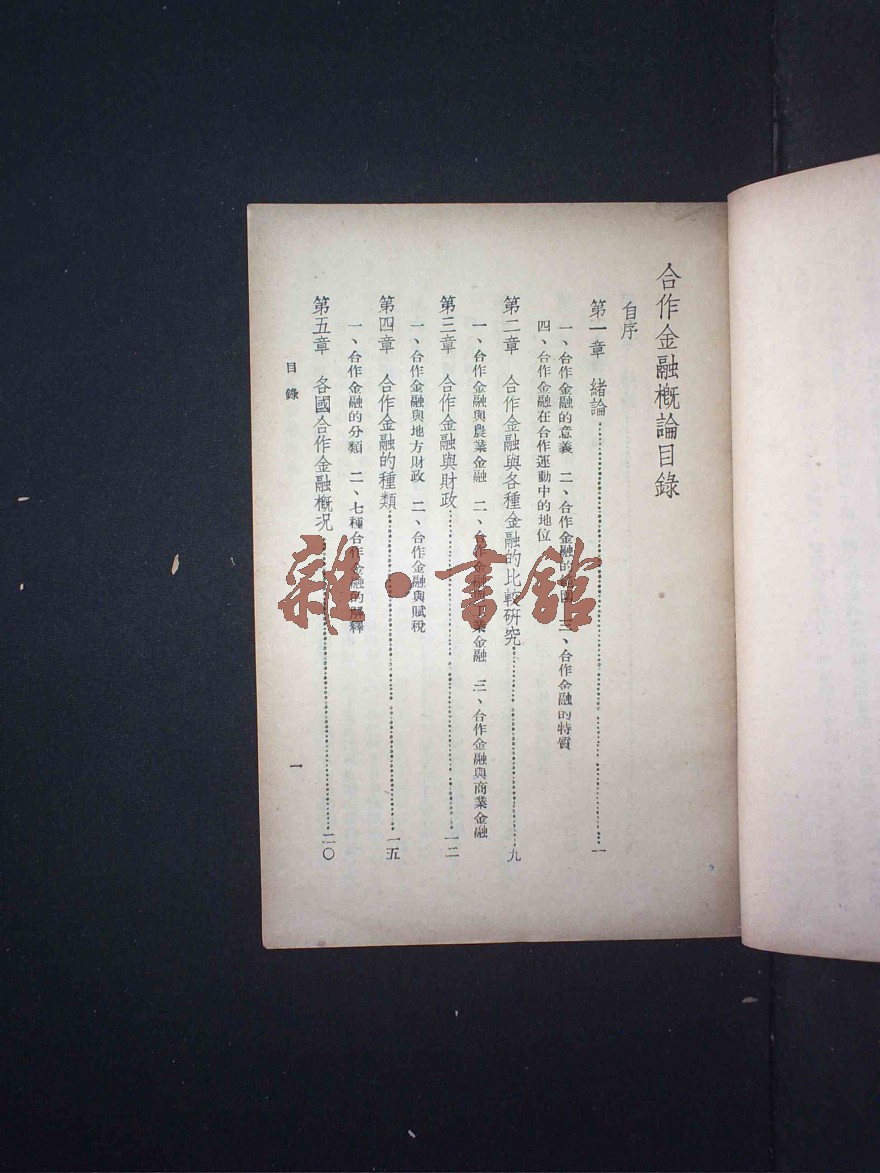 合作金融概論目錄
自序
第一章 緒論……一
一、合作金融的意義 二、合作金融的範圍 三、合作金融的特質
四、合作金融在合作運動中的地位
第二章 合作金融與各種金融的比較研究……九
一、合作金融與農業金融 二、合作金融與工業金融 三、合作金融與商業金融
第三章 合作金融與財政……一二
一、合作金融與地方財政 二、合作金融與賦稅
第四章 合作金融的種類……一五
一、合作金融的分類 二、七種合作金融的解釋
第五章 各國合作金融概况……二〇
目錄
一
雜·書館